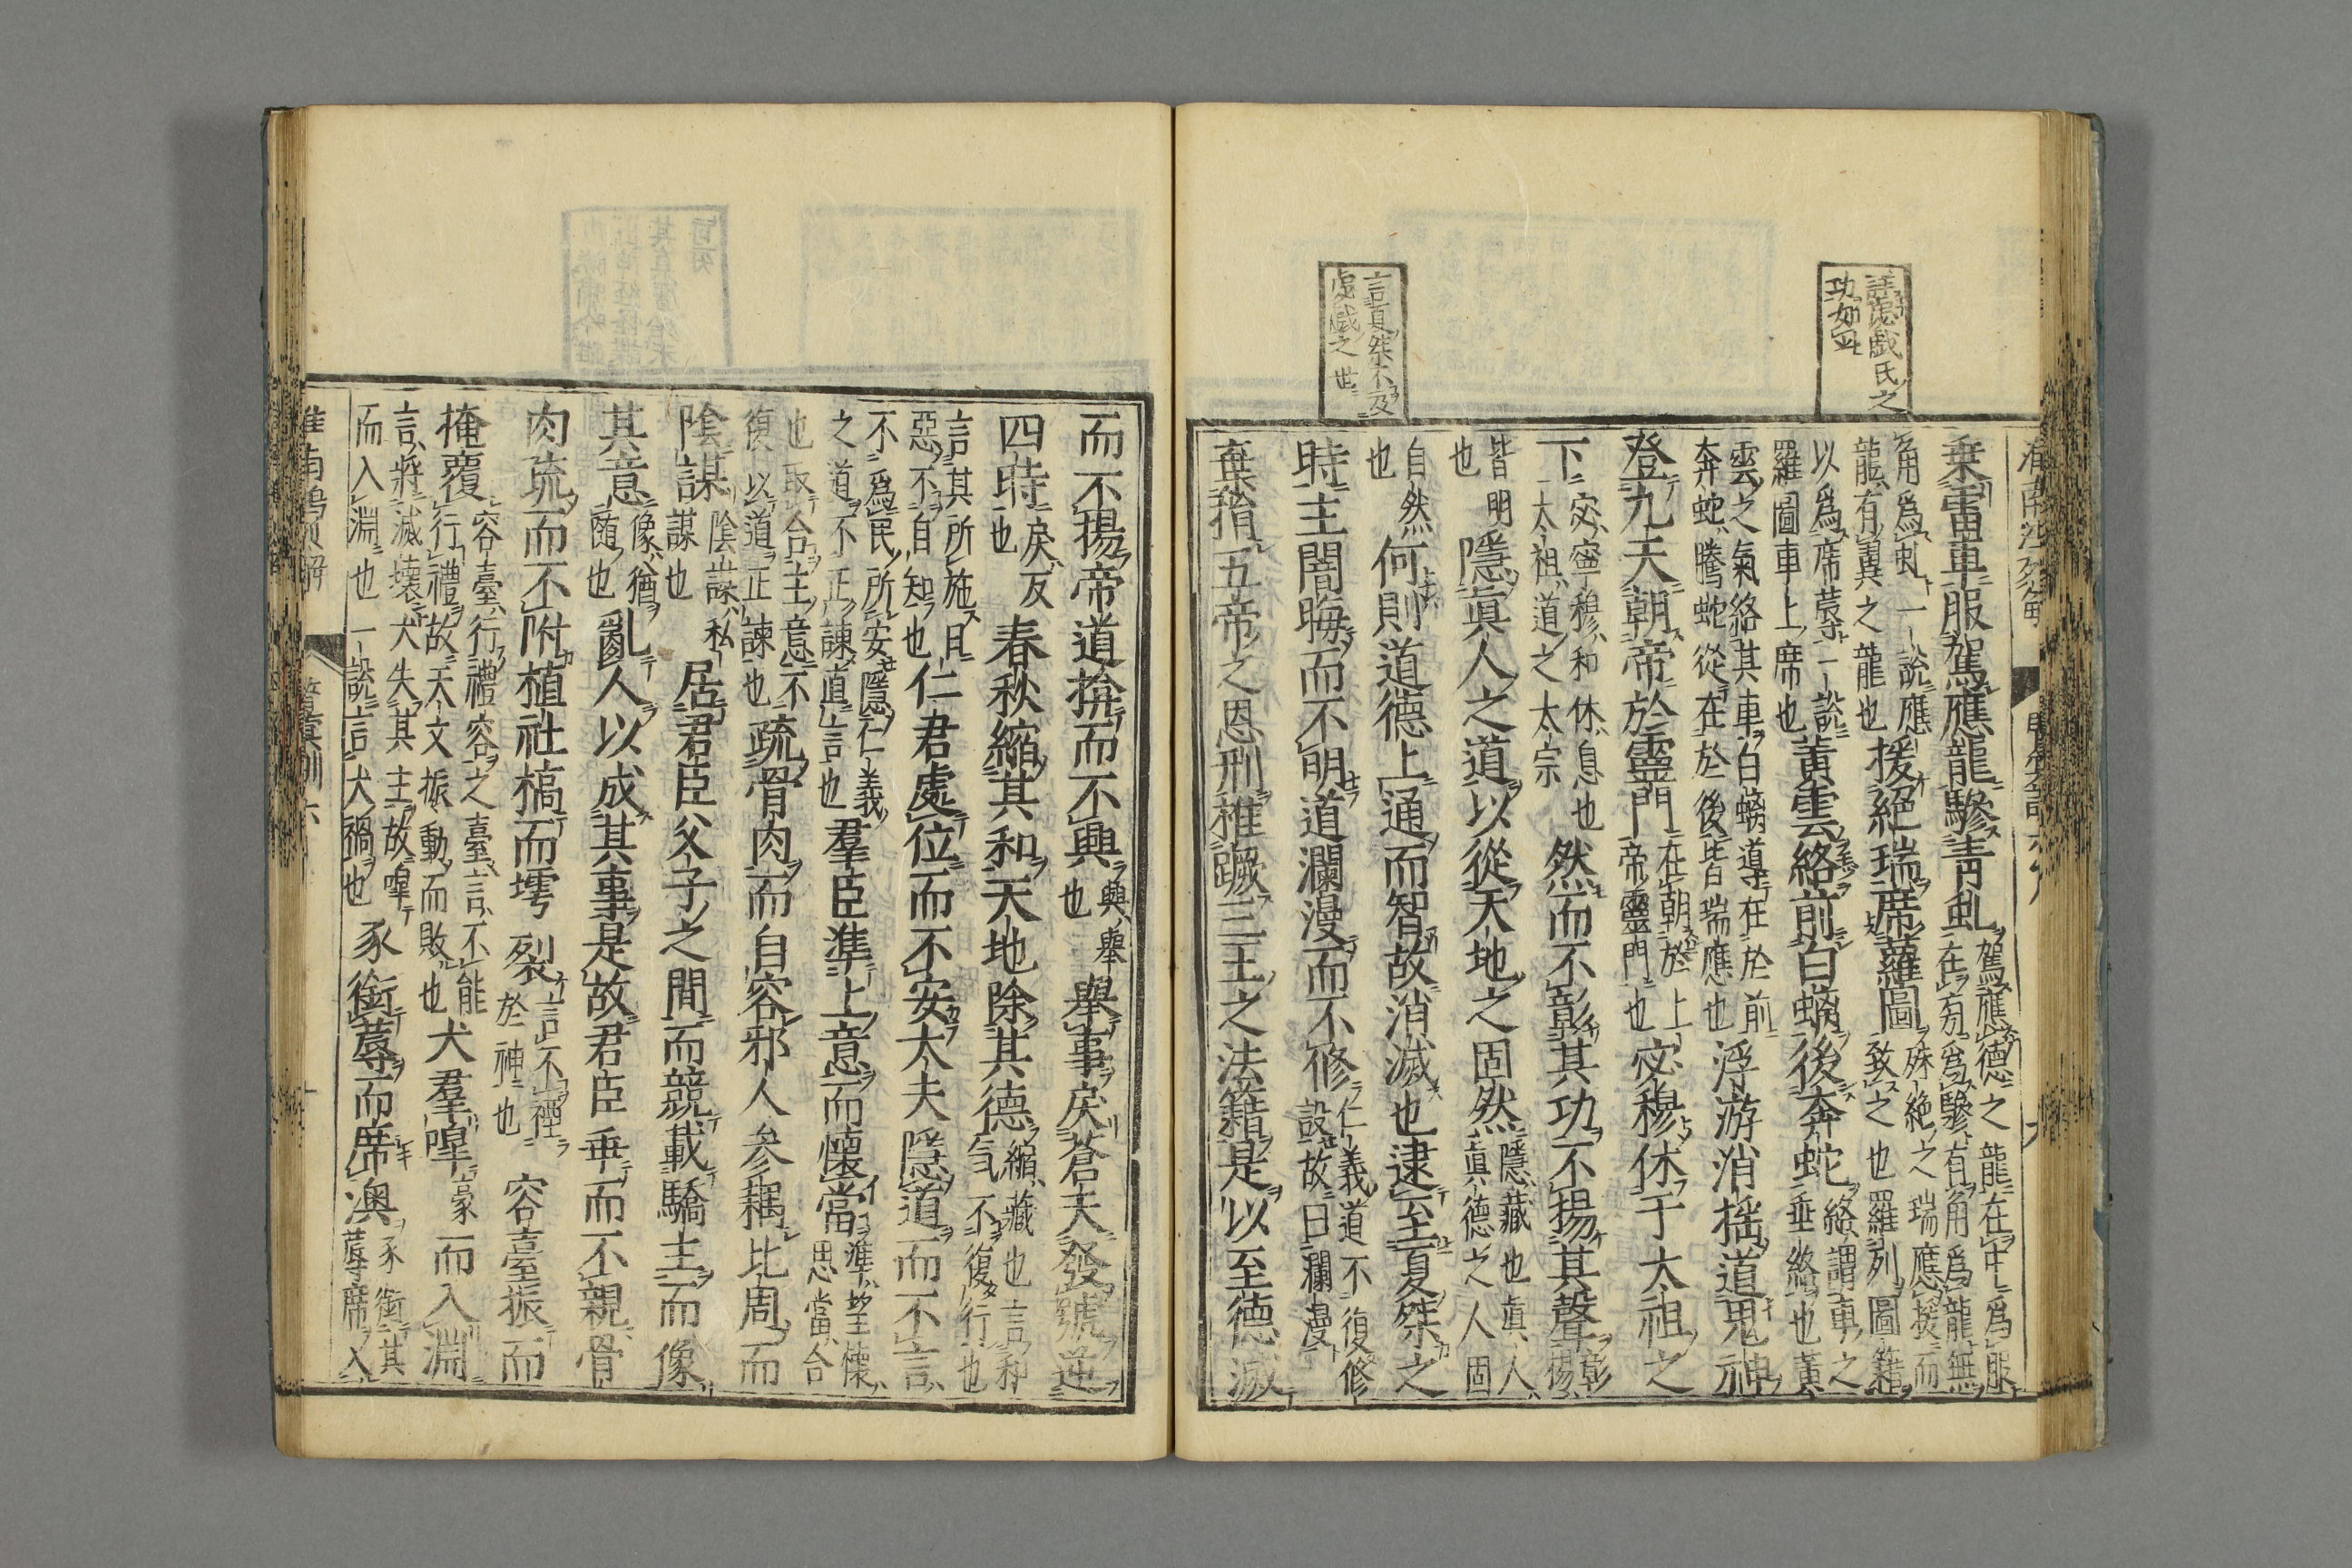 乗雷車服駕應龍驂青虬駕應德之龍在中爲服在旁爲驂有角爲龍無
角爲虬一說應龍有翼之龍也援絕瑞席蘿圖殊絕之瑞應援而致之也羅列圖籍
以爲席蓐一說羅圖車上席也黃雲絡前白螭後奔蛇絡謂車之垂絡也黃
雲之氣絡其車白螭導在於前奔蛇騰蛇從在於後皆瑞應也浮游消搖道鬼神
登九天朝帝於靈門在朝於上帝靈門也宓穆休于太祖之
下宓寧穆和休息也太祖道之太宗然而不彰其功不揚其聲彰揚
皆明也隱眞人之道以從天地之固然隱藏也眞人眞德之人固
自然也何則道德上通而智故消滅也逮至夏桀之
時主闇晦而不明道瀾漫而不修仁義道不復修設故曰瀾漫
棄捐五帝之恩刑推蹶三王之法籍是以至德滅
言夏桀不及
虙戲之世
虙戲氏之
而不揚帝道揜而不興興舉也舉事戾蒼天發號逆
四時戾反也春秋縮其和天地除其德縮藏也言和気不復行也
言其所施日惡不自知也仁君處位而不安大夫隱道而不言
不爲民所安隱仁義之道不正諫直言也羣臣準上意而懷當準望懷思當合
也取合主意不復以道正諫也疏骨肉而自容邪人參耦比周而
陰謀陰謀私謀也居君臣父子之間而競載驕主而像
其意像猶隨也亂人以成其事是故君臣乖而不親骨
肉疏而不附植社槁而𡐨裂言不禋於神也容臺振而
掩覆容臺行禮容之臺言不能行禮故天文振動而敗也犬羣嘷而入淵
言將滅壞犬失其主故嘷而入淵也一說言犬禍也豕銜蓐而席澳豕銜其蓐席入